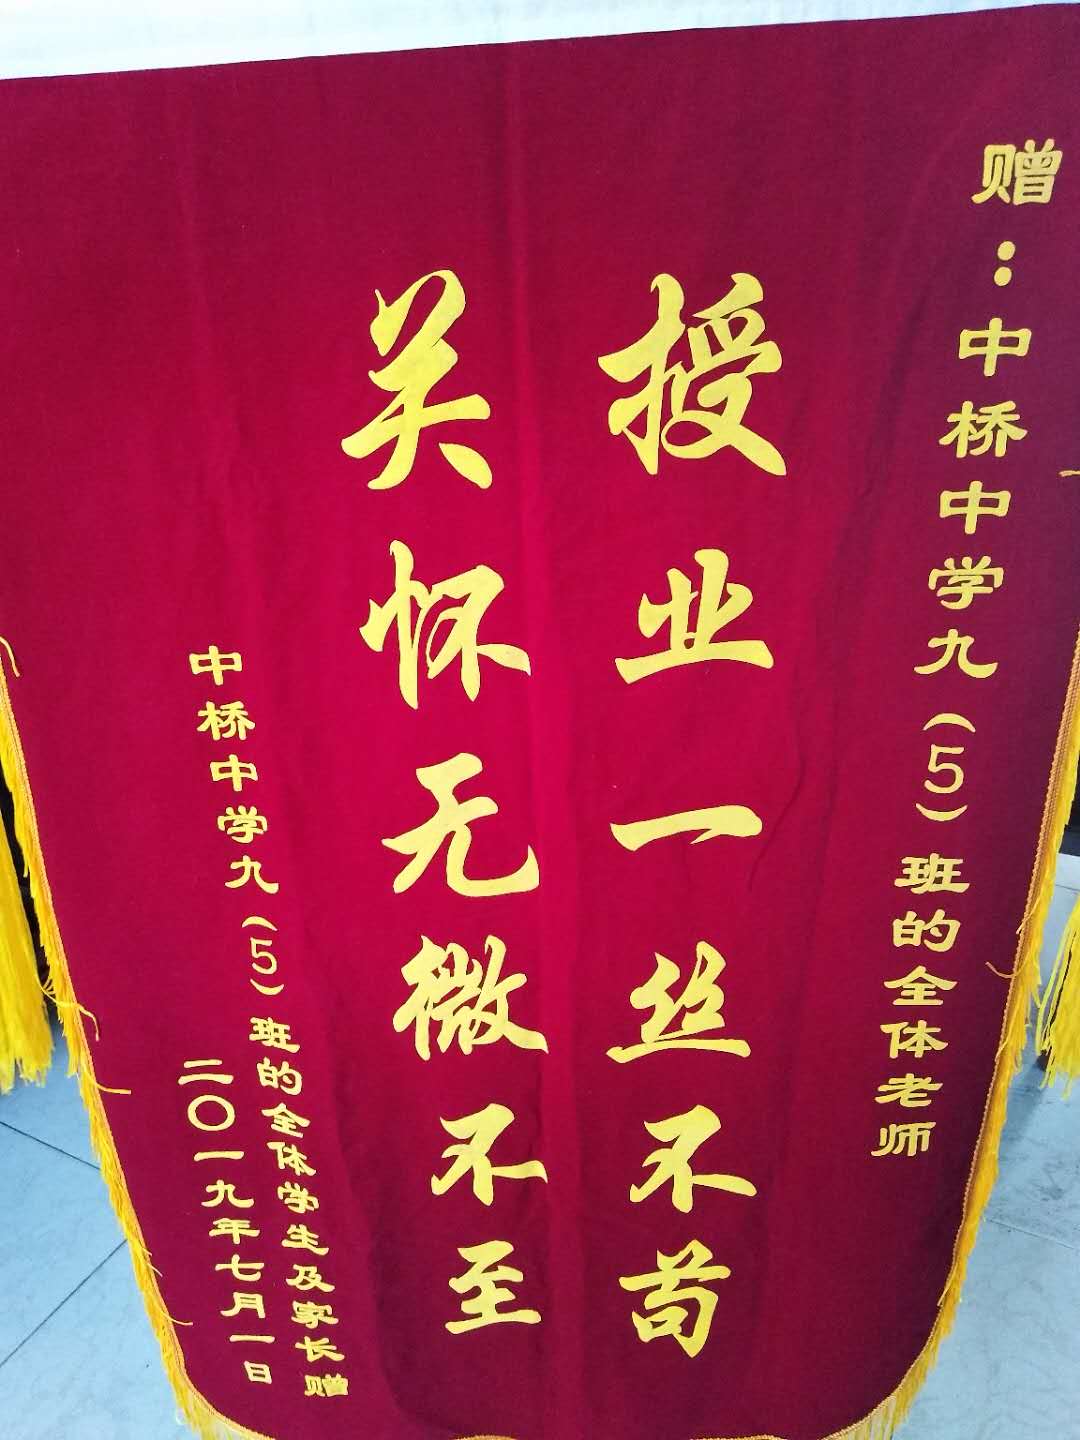 赠：中桥中学九（5）班的全体老师
授业一丝不苟
关怀无微不至
中桥中学九（5）班的全体学生及家长赠
二〇一九年七月一日